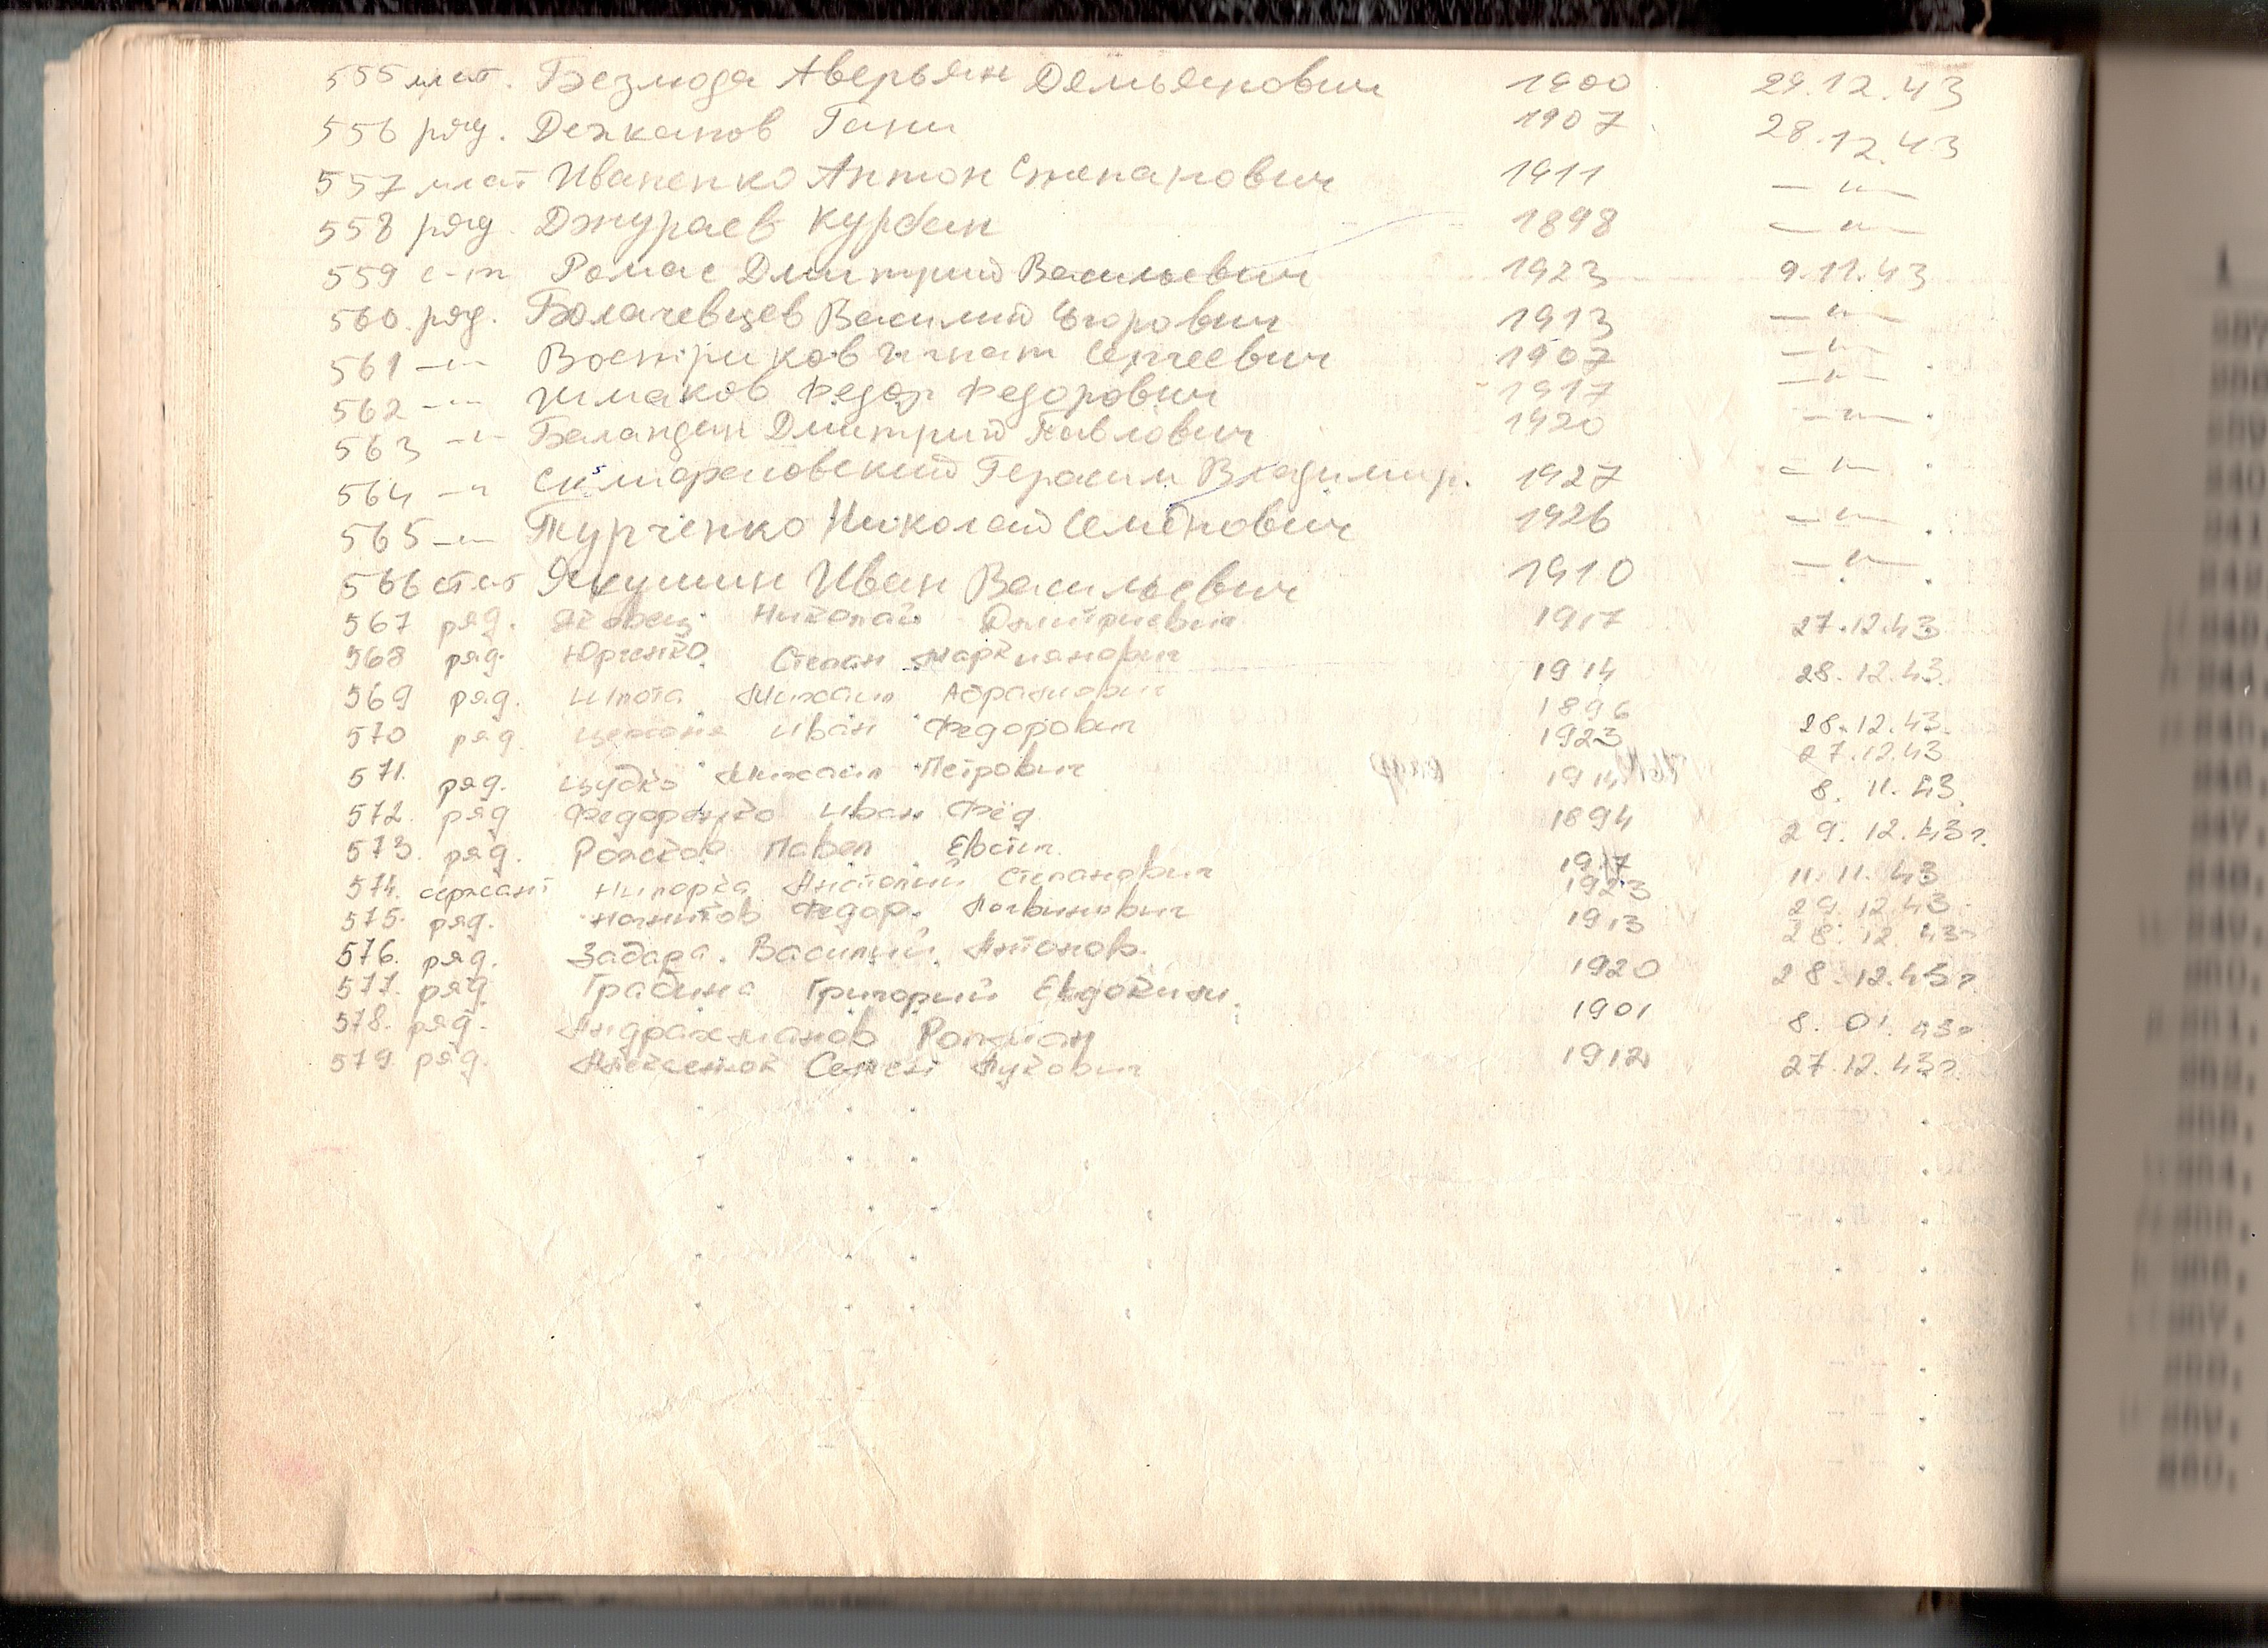 555 мл.с-т. Безмода Аверьян Демьянович 1900 29.12.43
556 ряд. Дехканов Гани 1907 28.12.43
557 мл.с-т Иваненко Антон Степанович 1911 —"—
558 ряд. Джураев Курбан 1898 —"—
559 с-т Ромас Дмитрий Васильевич 1923 9.11.43
560. ряд. Болачевцев Василий Егорович 1913 —"—
561 —"— Востриков Игнат Сергеевич 1907 —"—
562 —"— Шмаков Федор Федорович 1917 —"—
563 —"— Баландин Дмитрий Павлович 1920 —"—
564 —"— Герасим Владимир. 1927 —"—
565 —"— Турченко Николай Семёнович 1926 —"—
566 ст.с-т Якушин Иван Васильевич 1910 —"—
567 ряд. Яковец Николай Дмитриевич 1917 27.12.43
568 ряд. Юрченко Степан Маркианович 1914 28.12.43.
569 ряд. Шпота Михаил Абрамович 1896 28.12.43.
570 ряд. Иван Федорович 1923 27.12.43
571. ряд. Цудко Михаил Петрович 1914 8. 11. 43.
572. ряд Федоренко Иван Фёд 1894 29. 12. 43г.
573. ряд. Рожков Павел Евстиг. 1917 11. 11. 43
574. сержант Нипорка Анатолий Степанович 1923 29. 12. 43.
575. ряд. Федор. Логвинович 1913 28. 12. 43г
576. ряд. Задара. Василий. Антонов. 1920 28. 12. 43г.
577. ряд Грабина Григорий Евдоким. 1901 8. 01. 43г
578. ряд. Андрахманов Рожман
579. ряд. Алексенюк Семен Лукович 1912 27.12.43г.